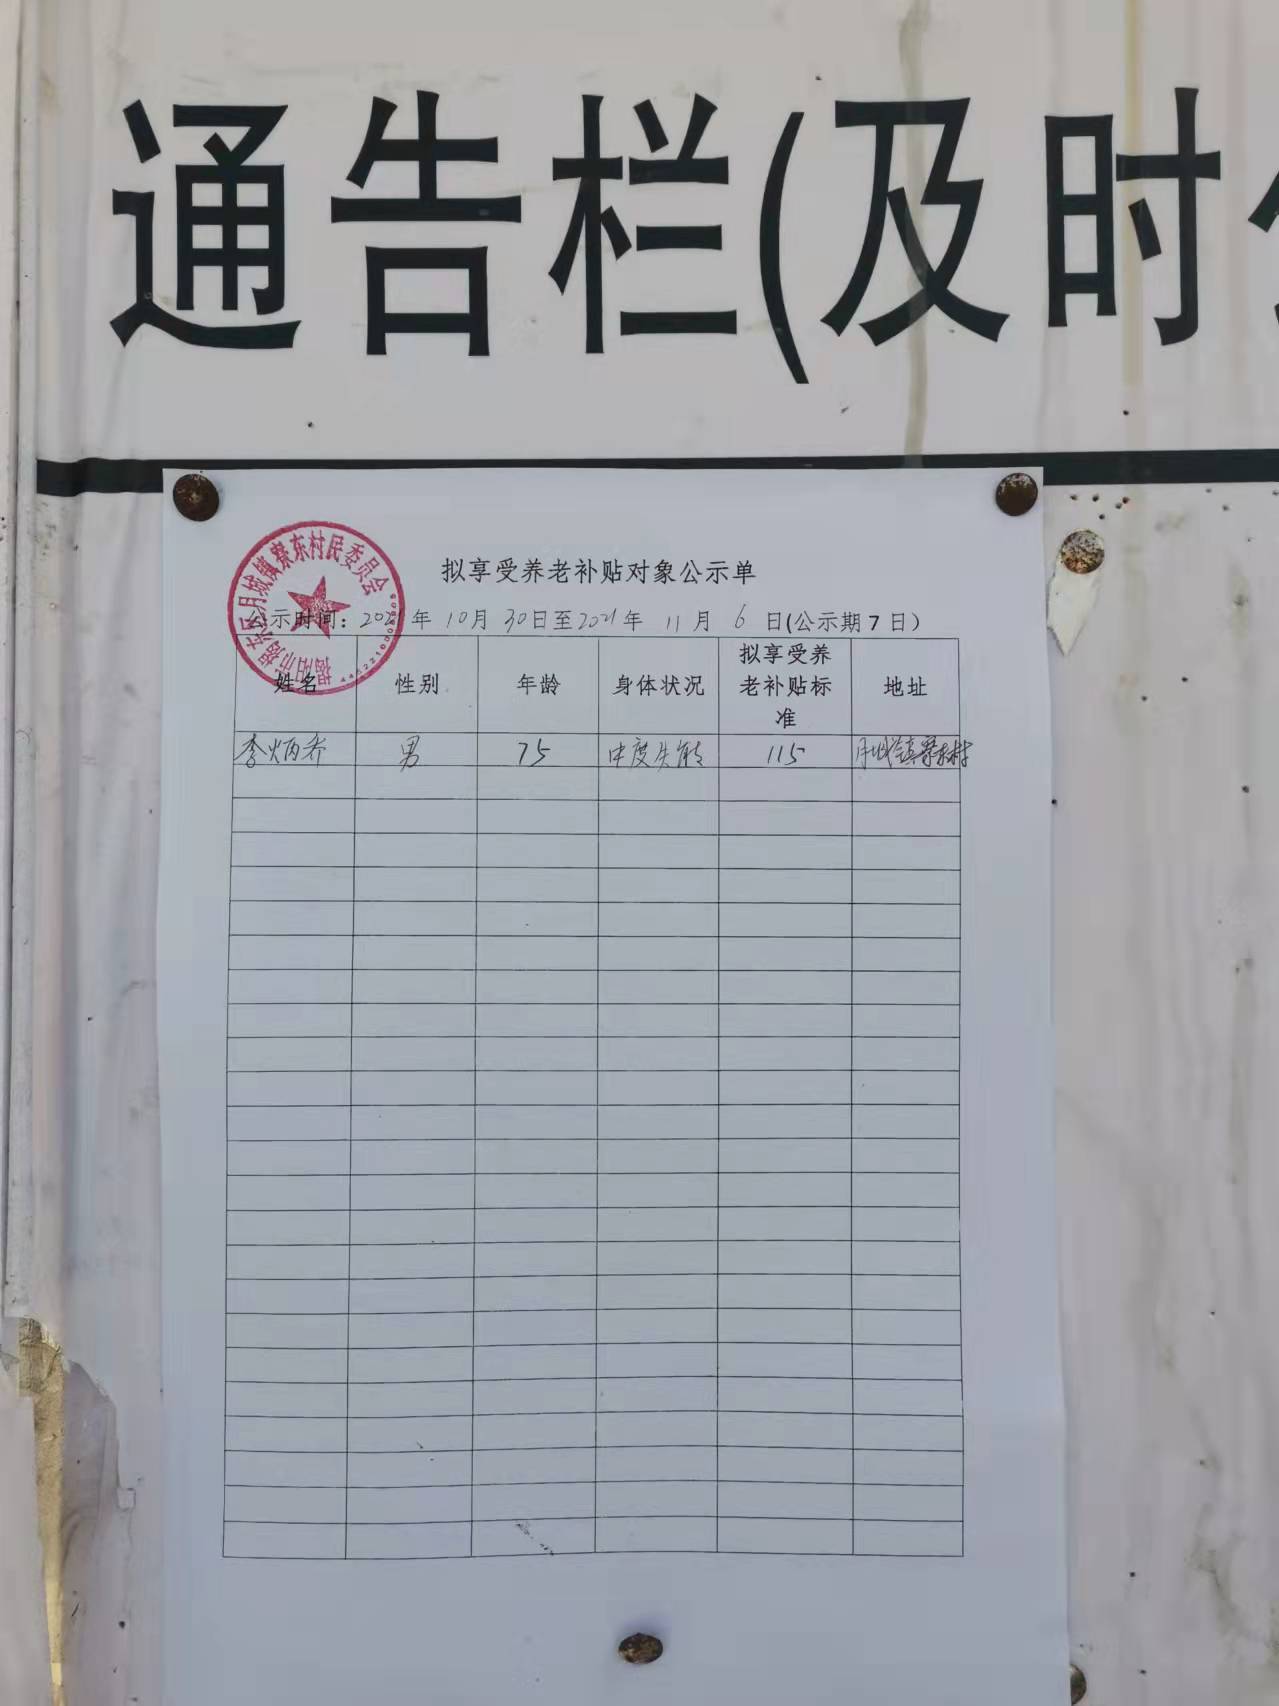 通告栏(及时公
揭阳市揭东区月城镇寮东村民委员会
拟享受养老补贴对象公示单
公示时间：2021年 10月 30日至2021年 11月 6日(公示期7日)
姓名 性别 年龄 身体状况 拟享受养老补贴标准 地址
李炳乔 男 75 中度失能 115 月城镇寮东村